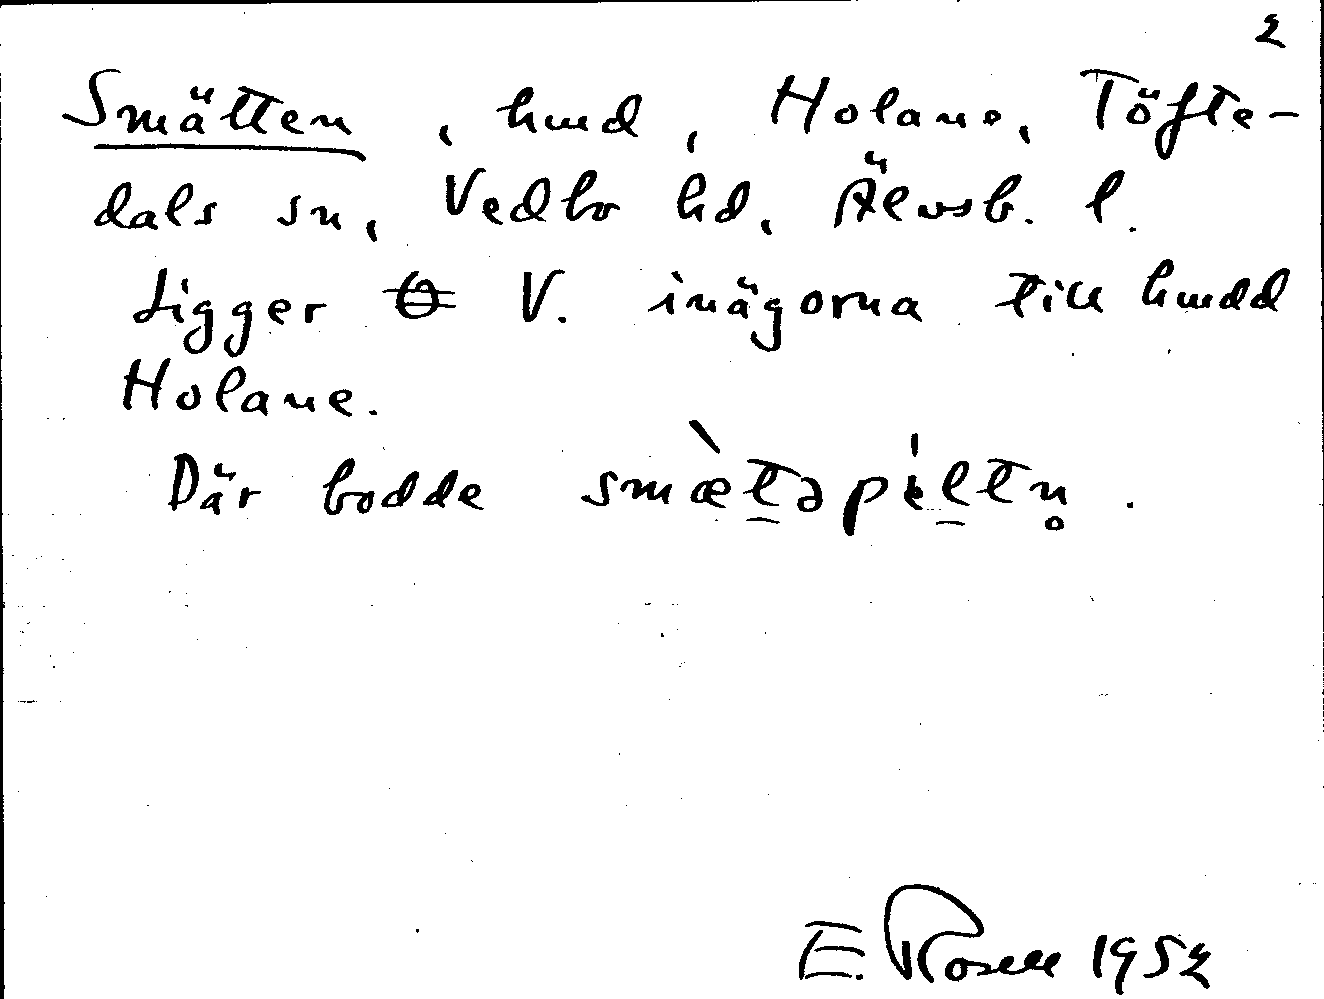 2
Smätten, hmd, Holane, Töfte-
dals sn, Vedbo hd, Älvsb. l.
Ligger O V. inägorna till hmdd
Holane.
Där bodde smæ̀t̲əpèl̲tn̥.
E. Rosell 1952